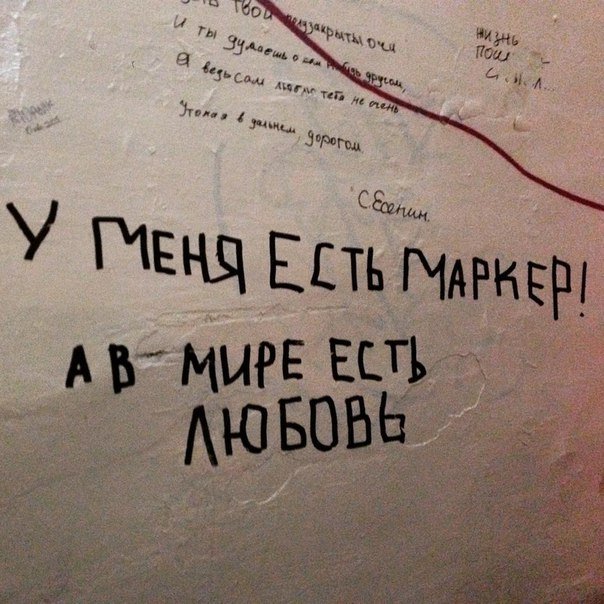 твои полузакрыты очи
И ты думаешь о ком нибудь другом,
Я ведь сам люблю тебя не очень
Утопая в дальнем дорогом.
С. Есенин.
ЖИЗНЬ
ПОШ
У МЕНЯ ЕСТЬ МАРКЕР!
А В МИРЕ ЕСТЬ
ЛЮБОВЬ